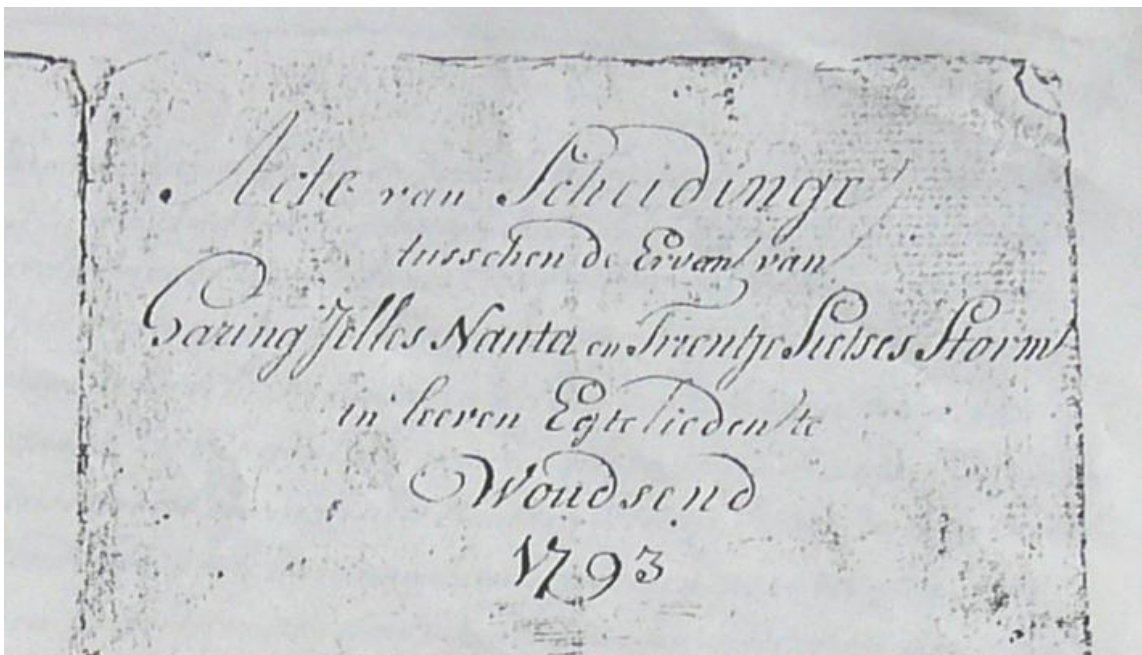 Acte van Scheidinge
tusschen de Ervan van
Haring Jelles Nauta en Trientje Sietses Storm
in leeven Egtelieden te
Woudsend
1793